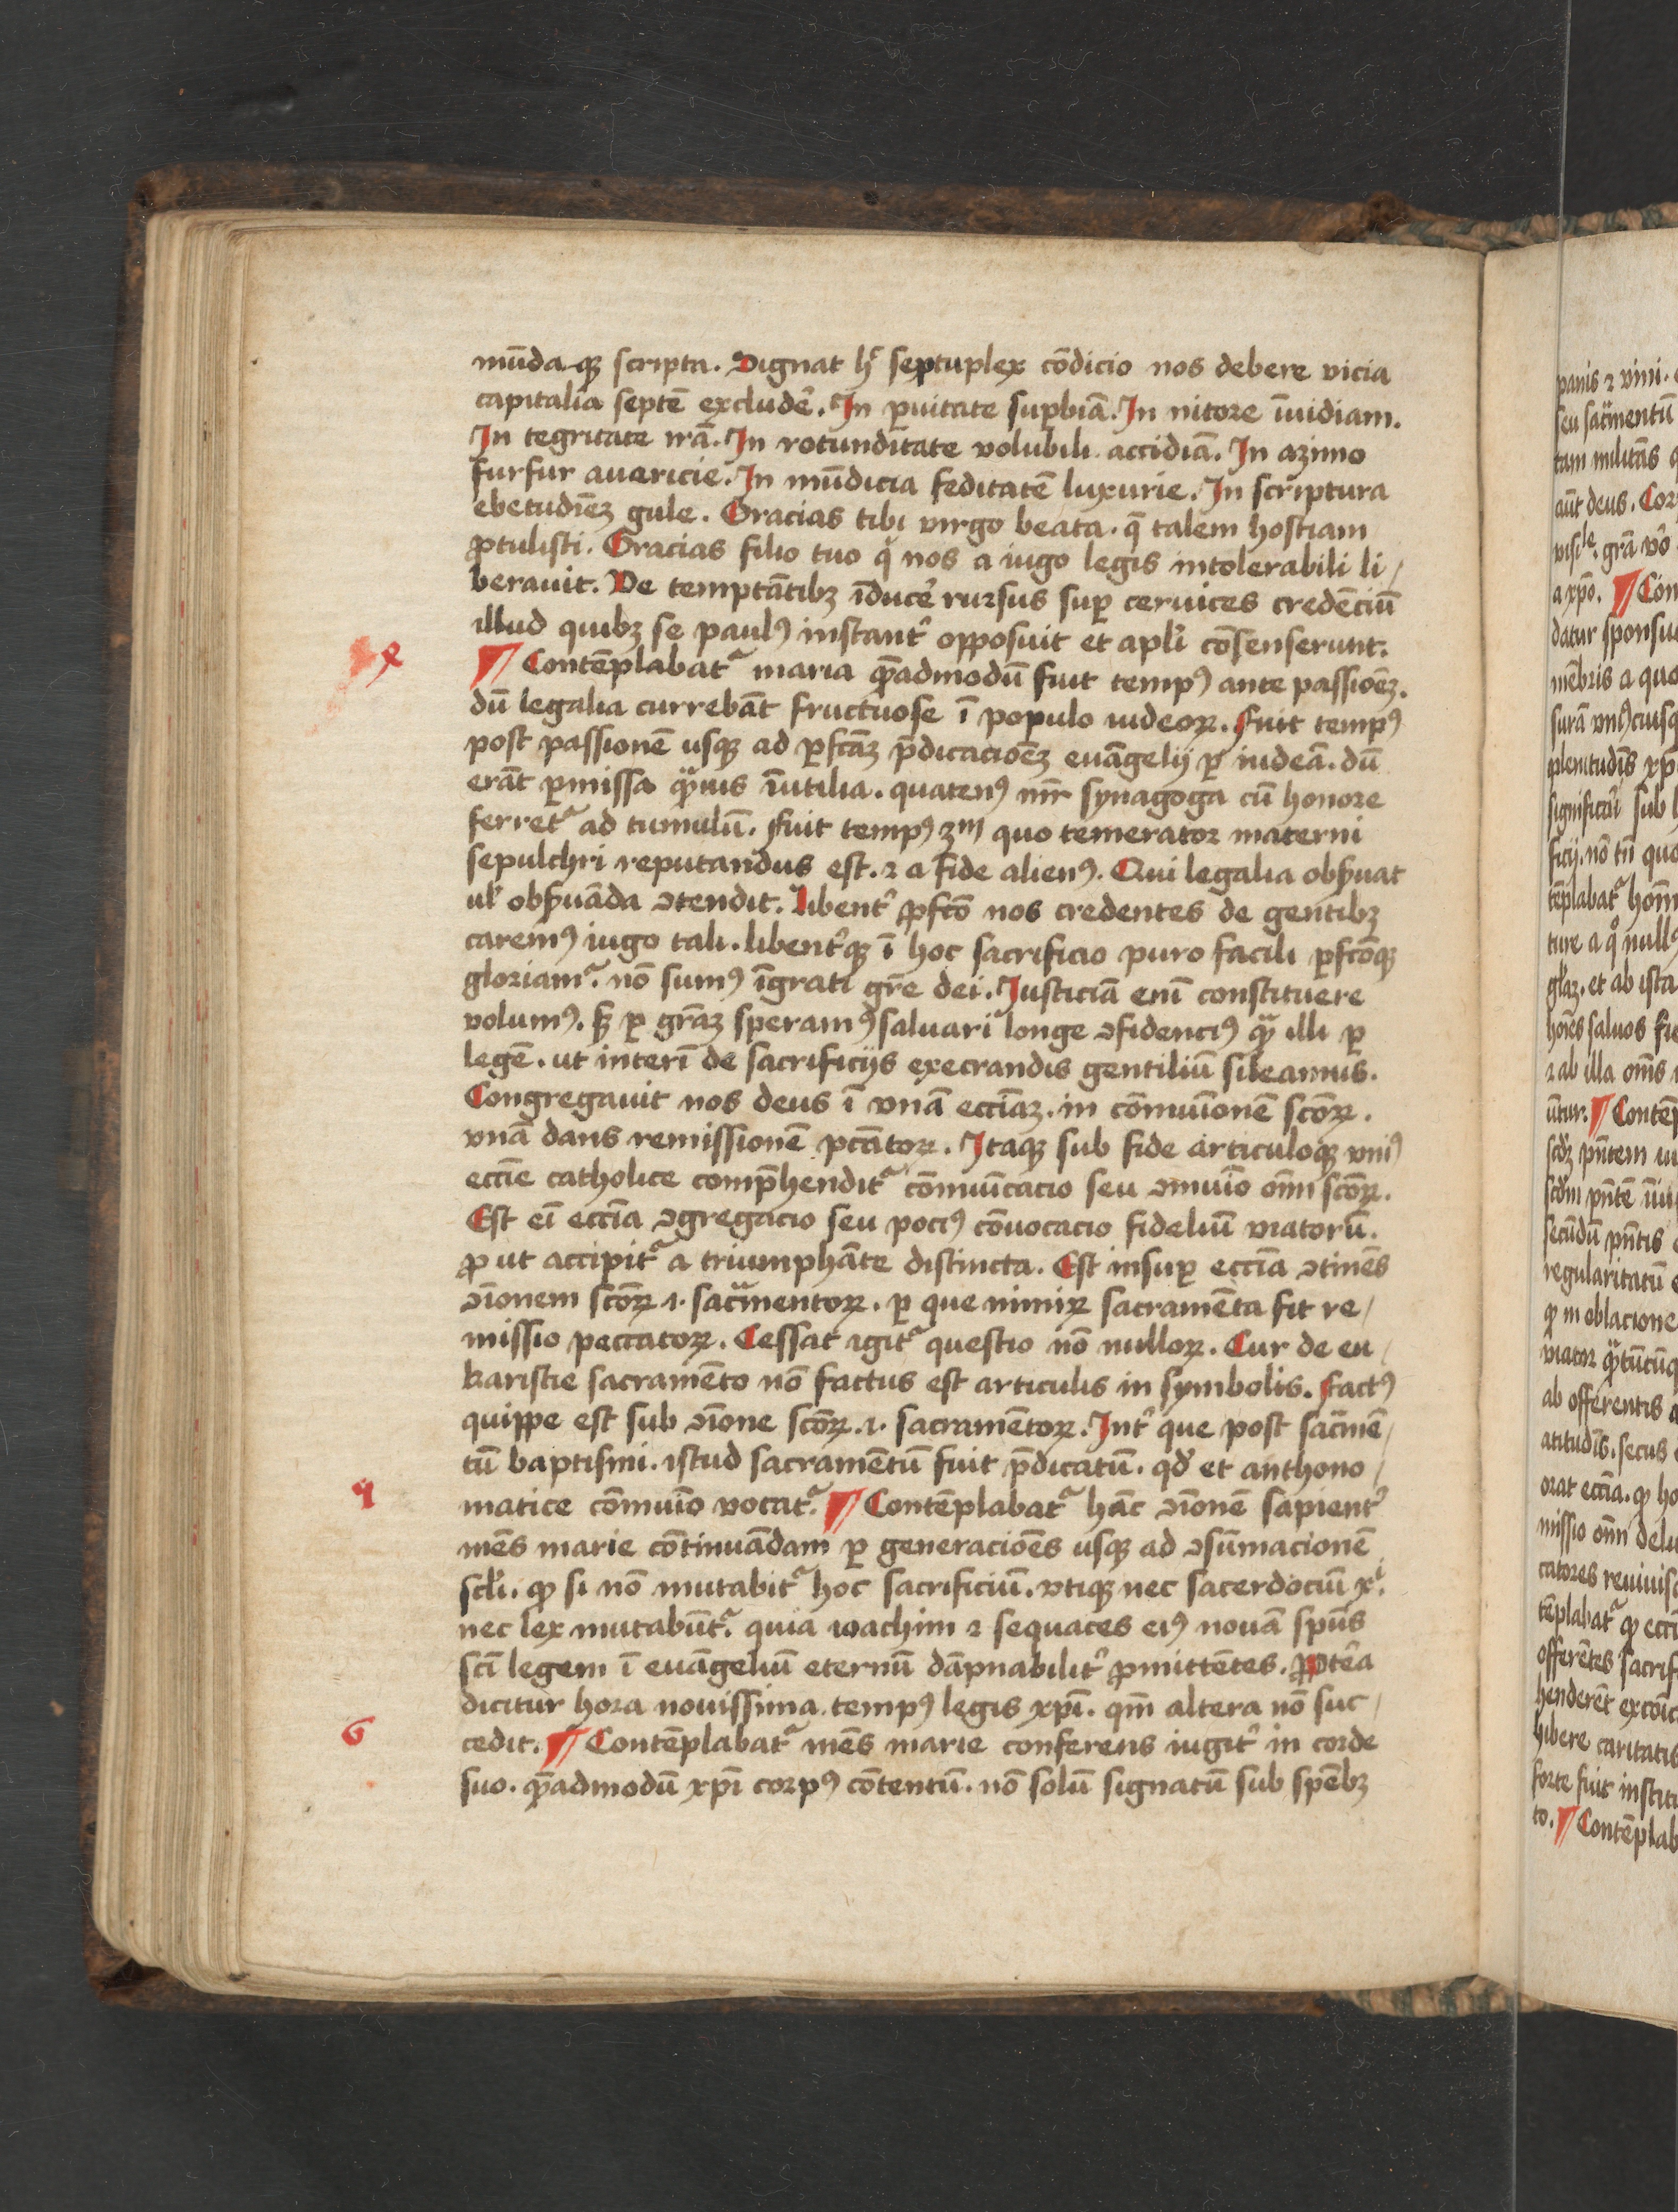 mūda q̄ scripta. Dignat h̄ septuplex cōdicio nos debere vicia
capitalia septē excludeʳ. In ꝑuitate suꝑbiā. In nitore īuidiam.
In tegritate irā. In rotunditate volubili accidiā. In azimo
furfur auericie. In mūdicia feditatē luxurie. In scriptura
ebetudīeꝫ gule. Gracias tibi virgo beata. q̄ talem hostiam
ꝓtulisti. Gracias filio tuo q nos a iugo legis intolerabili li/
berauit. Ve temptātibꝫ īducer̄ rursus suꝑ ceruices credēciū
illud quibꝫ se paulꝰ instant̄ opposuit et apl̄i cōsenserunt.
4
¶ Contēplabat᷑ maria q̄admodū fuit tempꝰ ante passioēꝫ.
dū legalia currebāt fructuose ī populo iudeoꝝ. Fuit tempꝰ
post passionē usqꝫ ad ꝑfc̄aꝫ p̄dicacioēꝫ euāgelij ꝑ iudeā. dū
erāt ꝑmissa q̄uis īutilia. quatenꝰ mr̄ synagoga cū honore
ferret᷑ ad tumulū. Fuit tempꝰ 3ᵐ quo temerator materni
sepulchri reputandus est. ⁊ a fide alienꝰ. Qui legalia obẜuat
ul̄ obẜuāda ꝯtendit. Libent̄ ꝓfc̄o nos credentes de gentibꝫ
caremꝰ iugo tali. libent̄qꝫ ī hoc sacrificio puro facili ꝑfc̄oqꝫ
gloriam᷑. nō sumꝰ īgrati gr̄e dei. Justiciā enī constituere
volumꝰ. sꝫ ꝑ gr̄aꝫ speramꝰ saluari longe ꝯfidenciꝰ qᷓ illi ꝑ
legē. ut interī de sacrificijs execrandis gentiliū sileamus.
Congregauit nos deus ī vnā eccīaꝫ. in cōmuīonē scōꝝ.
vnā dans remissionē pc̄atoꝝ. Itaqꝫ sub fide articuloqꝫ vniꝰ
eccīe catholice comp̄hendit᷑ cōmuīcacio seu ꝯmuīo om̄ scōꝝ.
Est eī eccīa ꝯgregacio seu pociꝰ cōuocacio fideliū viatorū.
ꝓ ut accipit᷑ a triumphāte distincta. Est insuꝑ eccīa ꝯtinēs
ꝯīonem scōꝝ .i. sac̄mentoꝝ. ꝑ que nimiꝝ sacramēta fit re/
missio peccatoꝝ. Cessat igit᷑ questio nō nulloꝝ. Cur de eu/
karistie sacramēto nō factus est articulis in symbolis. Factꝰ
quippe est sub ꝯīone scōꝝ .i. sacramētoꝝ. Int̄ que post sac̄mē/
tū baptismi. istud sacramētū fuit p̄dicatū. qd̄ et anthono/
5
matice cōmuīo vocat᷑. ¶ Contēplabat᷑ hāc ꝯīonē sapient̄
mēs marie cōtinuādam ꝑ generacioēs usqꝫ ad ꝯsūmacionē
scl̄i. qꝫ si nō mutabit᷑ hoc sacrificiū. vtiqꝫ nec sacerdociū xⁱ.
nec lex mutabūt᷑. quia ioachim ⁊ sequaces eiꝰ nouā spūs
sc̄i legem ī euāgeliū eternū dāpnabilit̄ ꝓmittētes. ꝓpt̄ea
dicitur hora nouissima tempꝰ legis xp̄i. qm̄ altera nō suc/
6
cedit. ¶ Contēplabat᷑ mēs marie conferens iugit̄ in corde
suo. q̄admodū xp̄i corpꝰ cōtentū. nō solū signatū sub spēbꝫ
panis ⁊ vini.
seu sac̄mentū
tam militās
aūt deus. Cor
visile. grā vō
a xp̄o. ¶ Con
datur sponsu
mēbris a quo
surā vniꝰcuisq
plenitudīs xp̄
significāi sub
ficij. nō tn̄ quo
tēplabat᷑ hom
ture a qo nullꝰ
gl̄aꝫ. et ab ista
hoīes saluos fi
⁊ ab illa om̄s
ūtur. ¶ Contēp
scd̄ꝫ pn̄tem
scd̄m pn̄tē
secūdū pn̄tis
regularitatū
qꝫ in oblacione
viator
ab offerentis
atitudīs. secus
orat eccīa. qꝫ ho
missio om̄ delu
catores reuiuisc
tēplabat᷑ qꝫ ecc
offerētes sacrif
henderēt excōic
hibere caritatis
forte fuit institu
to. ¶ Contēplab